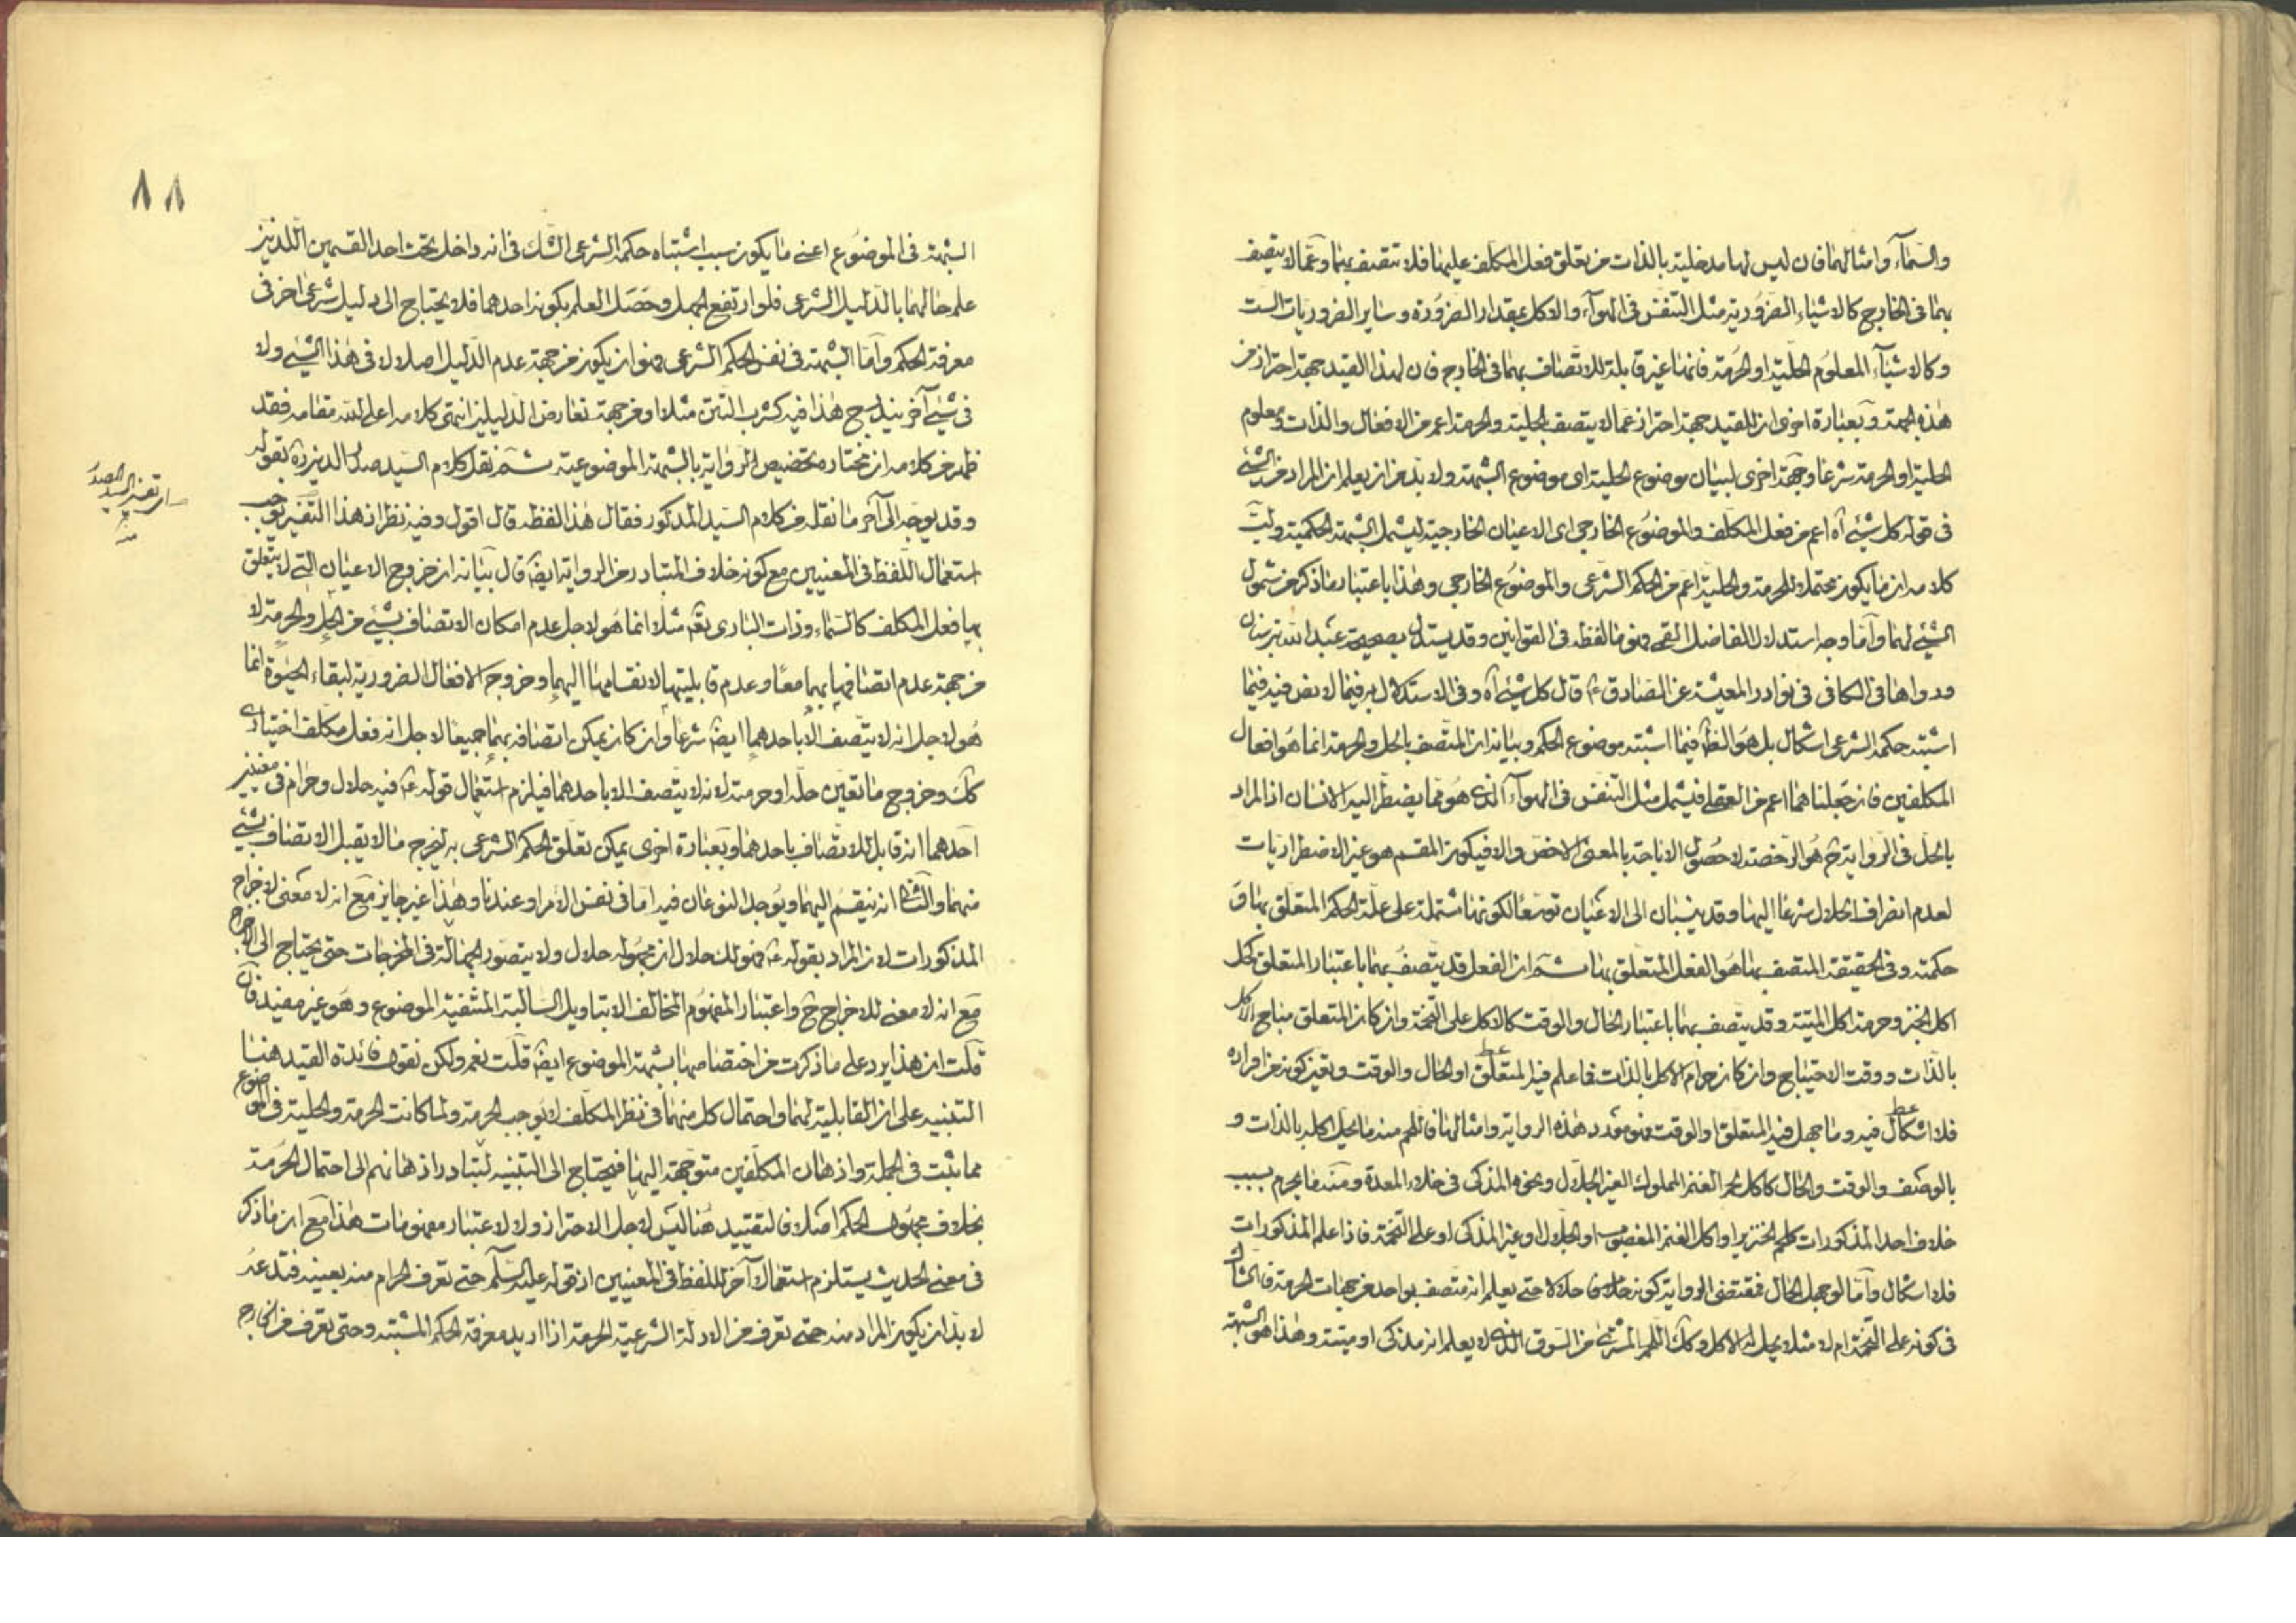 والسّماء وامثالهما فان ليس لها مدخلية بالذات من تعلق فعل المكلف عليهما فلا تتصف بهما وعمّا لا يتصف
بهما فى الخارج كالاشياء الضرورية مثل التنفس فى الهواء والاكل بمقدار الضرورة وساير الضروريات الست
وكالاشياء المعلوم الحلية او الحرمة فانها غير قابلة للاتصاف بهما فى الخارج فان لهذا القيد جهة احتراز من
هذه الجهة وبعبارة اخرى ان للقيد جهة احتراز عما لا يتصف بالحلية والحرمة اعم من الافعال والذات ومعلوم
الحلية او الحرمة شرعا وجهة اخرى لبيان موضوع الحلية اى موضوع الشبهة ولا بد من ان يعلم ان المراد من الشئ
فى قوله كل شئ آه اعم من فعل المكلف والموضوع الخارجى اى الاعيان الخارجية ليشمل الشبهة الحكمية
كلامه ان ما يكون محتملا للحرمة والحلية اعم من الحكم الشرعى والموضوع الخارجى وهذا باعتبار ما ذكر من شمول
الشئ لهما وامّا وجه استدلال الفاضل القمى فهو ما لفظه فى القوانين وقد يستدل بصحيحة عبد الله بن سنان
ورواها فى الكافى فى نوادر المعيشة عن الصّادق ع قال كل شئ آه وفى الاستدلال به فيما لا نص فيه فيما
اشتبه حكمه الشرعى اشكال بل هو الظ فيما اشتبه موضوع الحكم وبيانه ان المتصف بالحل والحرمة انما هو افعال
المكلفين فان جعلناهما اعم من العقلى فيشمل مثل التنفس فى الهواء الذى هو مما يضطر اليه الانسان اذ المراد
بالحل فى الرواية ح هو الرخصة لا حصول الاباحة بالمعنى الاخص والا فيكون المقسم هو غير الاضطراريات
لعدم انصراف الحلال شرعا اليها وقد ينسبان الى الاعيان توسعا لكونها مشتملة على علة الحكم المتعلق بها و
حكمته وفى الحقيقة المتصف بهما هو الفعل المتعلق بها ثم ان الفعل قد يتصف بهما باعتبار المتعلق كحل
اكل الخبز وحرمة اكل الميتة وقد يتصف بهما باعتبار الحال والوقت كالاكل على التخمة وان كان المتعلق مباح الاكل
بالذات ووقت الاحتياج وان كان حرام الاكل بالذات فما علم فيه المتعلق او الحال والوقت وتعين كونه من افراده
فلا اشكال فيه وما جهل فيه المتعلق او الوقت فهو مورد هذه الرواية وامثالها فاللحم منه ما يحل اكله بالذات و
بالوصف والوقت والحال كاكل لحم الغنم المملوك الغير الجلال ونحوه المذكى فى خلاء المعدة ومنه ما يحرم بسبب
خلاف احد المذكورات كلحم الخنزير او اكل الغنم المغصوب او الجلال او غير المذكى او على التخمة فاذا علم المذكورات
فلا اشكال وامّا لو جهل الحال فمقتضى الرواية كونه حلالا حتى يعلم انه متصف بواحد من جهات الحرمة فالشاك
فى كونه على التخمة ام لا مثلا يحل له الاكل وكك اللحم المشترى من السوق الذى لا يعلم انه مذكى او ميتة وهذا هو الشبهة
٨٨
الشبهة فى الموضوع اعنى ما يكون سبب اشتباه حكمه الشرعى الشك فى انه داخل تحت احد القسمين اللذين
علم حالهما بالدليل الشرعى فلو ارتفع الجهل وحصل العلم بكونه احدهما فلا يحتاج الى دليل شرعى اخر فى
معرفة الحكم وامّا الشبهة فى نفس الحكم الشرعى فهو ان يكون من جهة عدم الدليل اصلا لا فى هذا الشئ ولا
فى شئ آخر يندرج هذا فيه كشرب التتن مثلا او من جهة تعارض الدليلين انتهى كلامه اعلى الله مقامه فقد
ظهر من كلامه ان مختاره تخصيص الرواية بالشبهة الموضوعية ثم نقل كلام السيد صدر الدين ره بقوله
وقد يوجه الى آخر ما نقله من كلام السيد المذكور فقال هذا لفظه قال اقول وفيه نظر ان هذا التفسير يوجب
استعمال اللفظ فى المعنيين مع كونه خلاف المتبادر من الرواية ايضا قال بيانه ان خروج الاعيان التى لا يتعلق
بها فعل المكلف كالسماء وذات البارى تعالى مثلا انما هو لاجل عدم امكان الاتصاف بشئ من الحل والحرمة لا
من جهة عدم اتصافها بهما معا وعدم قابليتها لانقسامها اليهما وخروج الافعال الضرورية لبقاء الحيوة انما
هو لاجل انه لا يتصف الا باحدهما ايضا شرعا وان كان يمكن اتصافه بهما جميعا لاجل انه فعل مكلف اختيارى
كك وخروج ما تعين حله او حرمته لانه لا يتصف الا باحدهما فيلزم استعمال قوله ع فيه حلال وحرام فى معنيين
احدهما انه قابل للاتصاف باحدهما وبعبارة اخرى يمكن تعلق الحكم الشرعى به ليخرج ما لا يقبل الاتصاف بشئ
منهما والثانى انه ينقسم اليهما ويوجد النوعان فيه اما فى نفس الامر او عندنا وهذا غير جايز مع انه لا معنى لاخراج
المذكورات لان المراد بقوله ع فهو لك حلال ان مجهوله حلال ولا يتصور الجهالة فى المخرجات حتى يحتاج الى الاخراج
مع انه لا معنى للاخراج ح واعتبار المفهوم المخالف الا بتاويل السالبة المنتفية الموضوع وهو غير مفيد فان
قلت ان هذا يرد على ما ذكرت من اختصاصها بشبهة الموضوع ايضا قلت نعم ولكن نقول فائدة القيد هنا
التنبيه على ان القابلية لهما واحتمال كل منهما فى نظر المكلف لا يوجب الحرمة ولما كانت الحرمة والحلية فى الموضوع
مما يثبت فى الجملة واذهان المكلفين متوجهة اليهما فيحتاج الى التنبيه لتبادر اذهانهم الى احتمال الحرمة
بخلاف مجهول الحكم اصلا فالتقييد هنا ليس لاجل الاحتراز ولا لاعتبار مفهوم هذا مع ان ما ذكر
فى معنى الحديث يستلزم استعمالا آخر للفظ فى المعنيين اذ قوله عليه السلم حتى تعرف الحرام منه بعينه فتدعه
لا بد ان يكون المراد منه حتى تعرف من الادلة الشرعية الحرمة اذا اريد معرفة الحكم المشتبه وحتى تعرف من الخارج